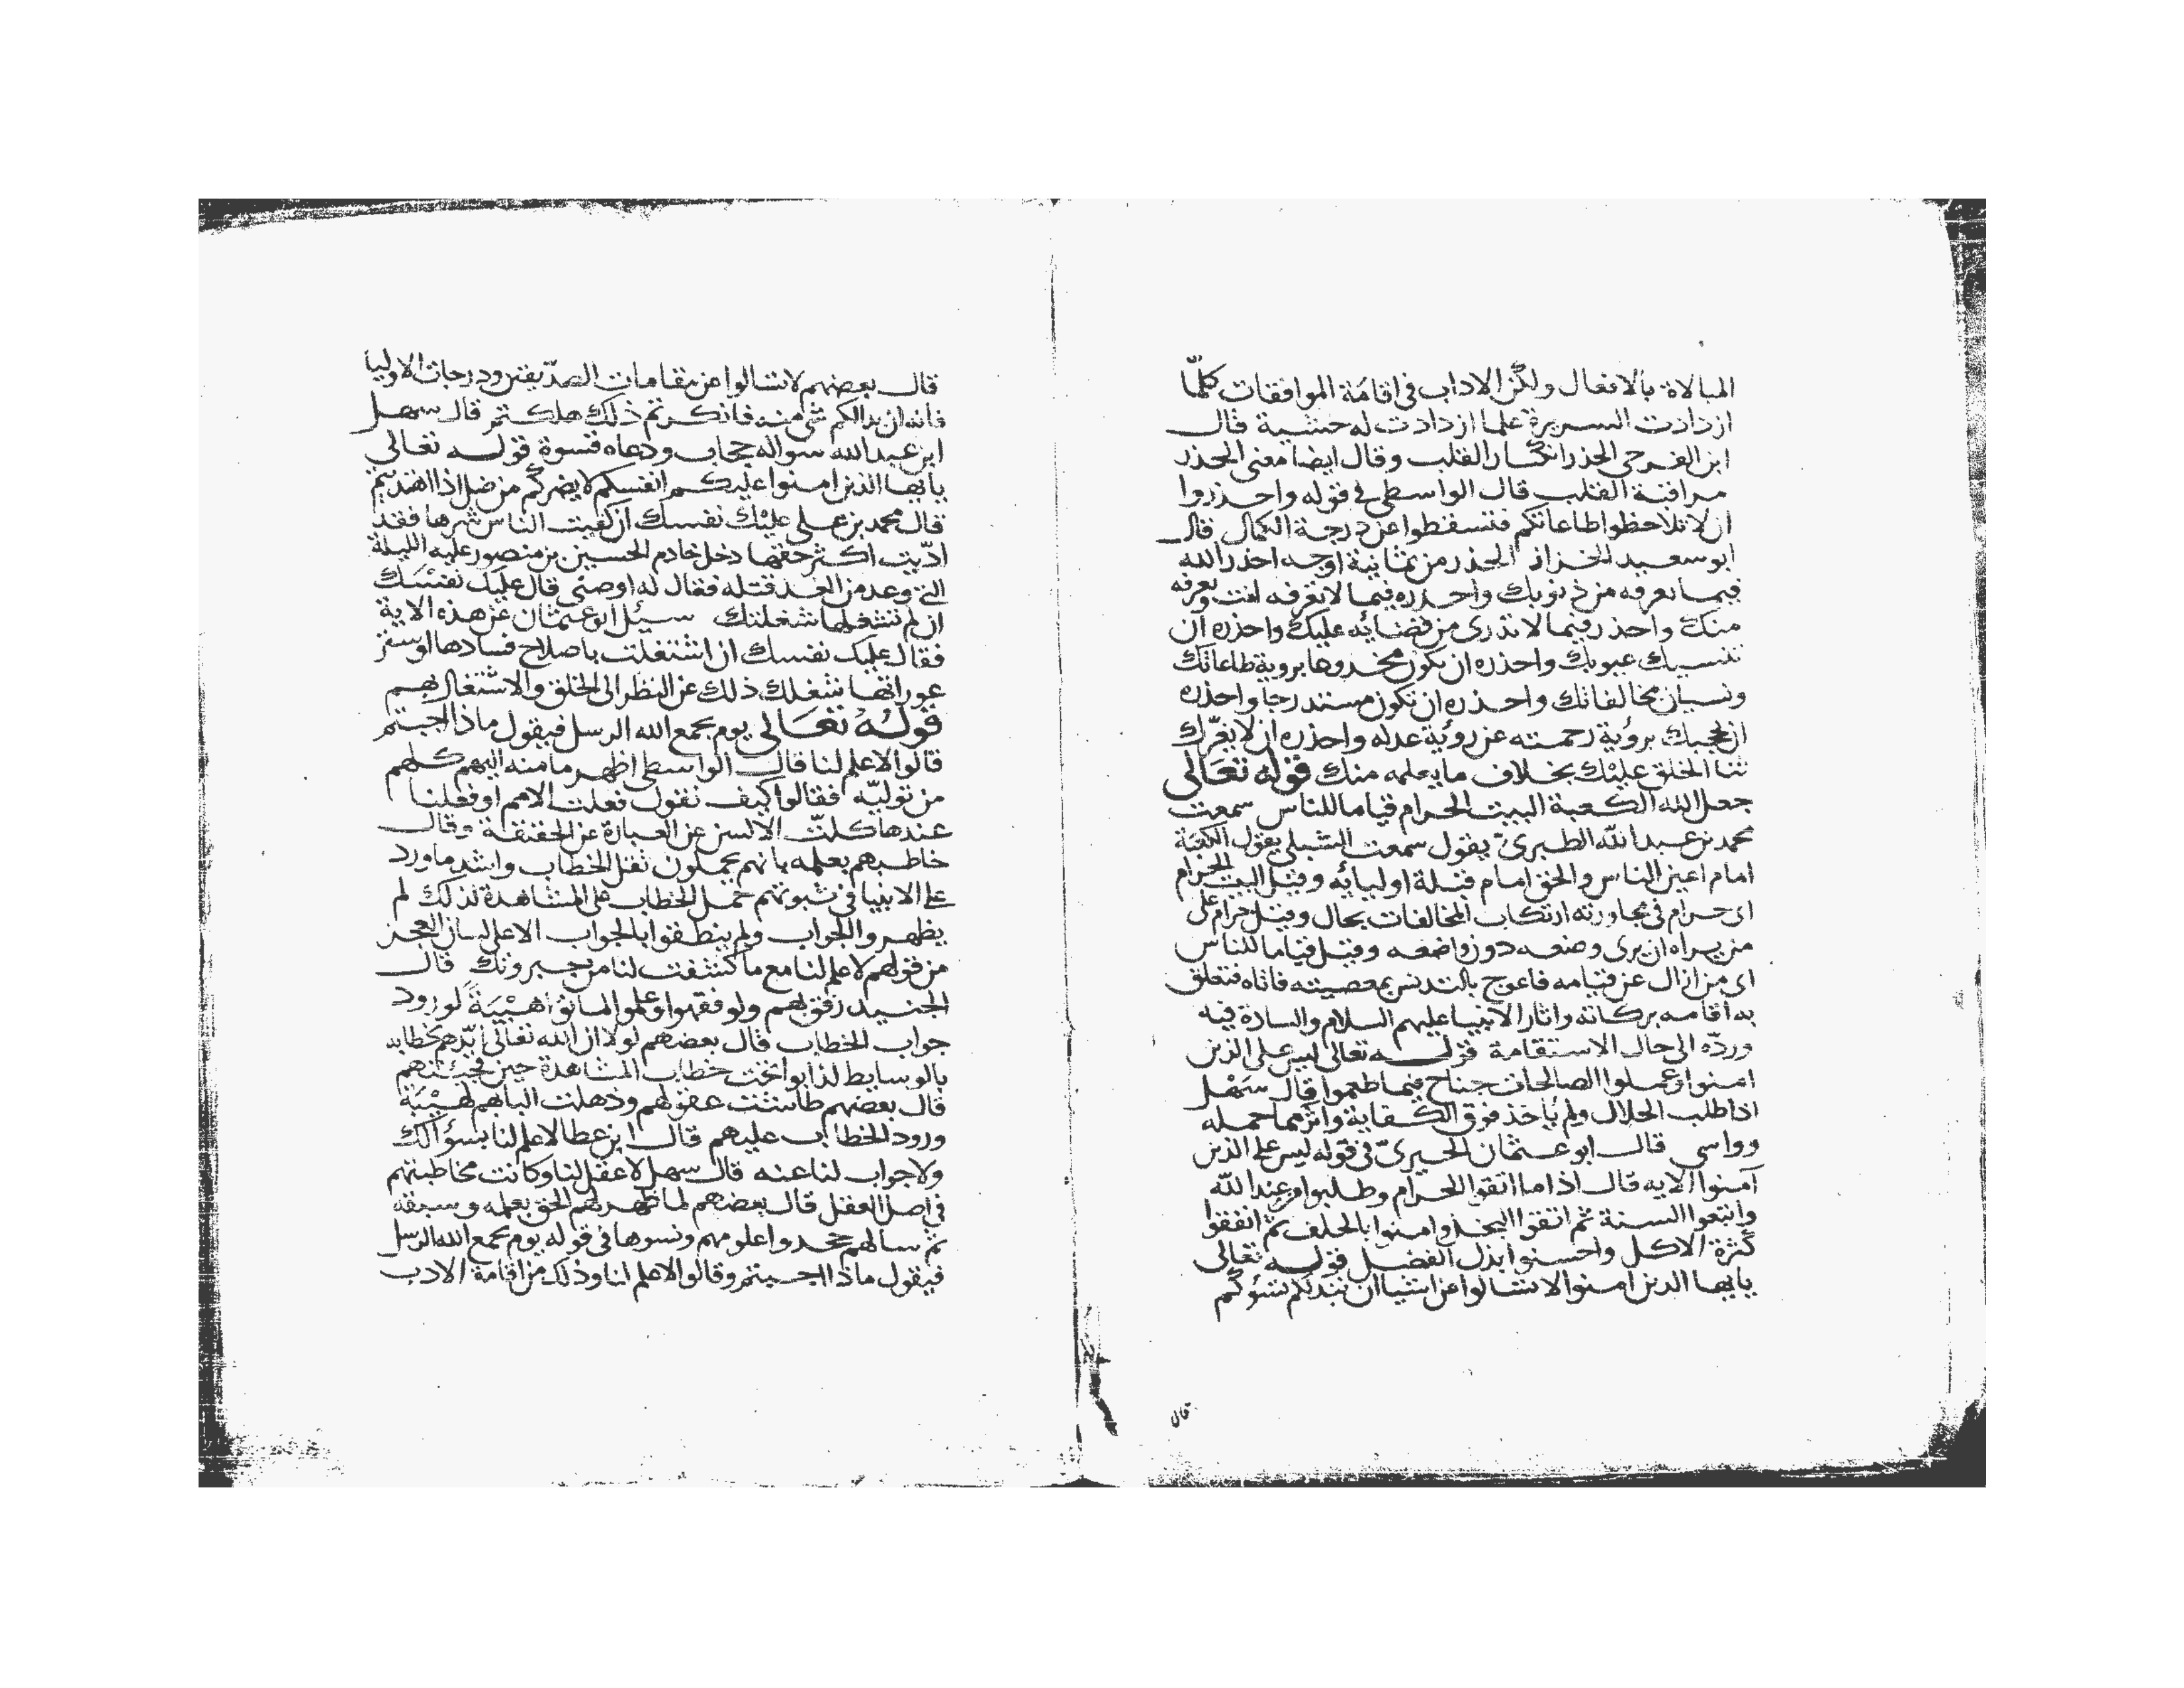 المبالاة بالافعال ولكن الاداب في اقامة الموافقات كلما
ازدادت السريرة علما ازدادت له خشية قال
ابن الفرحى الحذر انكسار القلب وقال ايضا معنى الحذر
مراقبة القلب قال الواسطى في قوله واحذروا
ان لا تلاحظوا طاعاتكم فتسقطوا عن درجة الكمال قال
ابو سعيد الخراز الحذر من ثمانية اوجه احذر الله
فيما تعرفه من ذنوبك واحذره فيما لا تعرفه انت ويعرفه
منك واحذر فيما لا تدرى من قضائه عليك واحذره ان
ننسيك عيوبك واحذره ان تكون مخدوعا بروية طاعاتك
ونسيان مخالفاتك واحذره ان تكون مستدرجا واحذره
ان يحجبك بروية رحمته عن روية عدله واحذره ان لا يغرك
ثنا الخلق عليك بخلاف ما يعلمه منك قوله تعالى
جعل الله الكعبة البيت الحرام قياما للناس سمعت
محمد بن عبد الله الطبرى يقول سمعت الشبلى يقول الكعبة
امام اعين الناس والحق امام قبلة اوليائه وقيل البيت الحرام
اى حرام في مجاورته ارتكاب المخالفات بحال وقيل حرام على
من يراه ان يرى وضعه دون واضعه وقيل قياما للناس
اى من ازال عن قيامه فاعوج بالتدنس بمعصيته فاتاه فتعلق
به اقامه بركاته واثار الانبيا عليهم السلام والسادة فيه
وردّه الى حال الاستقامة قوله تعالى ليس على الذين
امنوا وعملوا الصالحات جناح فيما طعموا قال سهل
اذا طلب الحلال ولم ياخذ فوق الكفاية واثر مما حمله
وواسى قال ابو عثمان الحيرى في قوله ليس على الذين
آمنوا الايه قال اذا ما اتقوا الحرام وطلبوا من عند الله
واتبعوا السنة ثم اتقوا البخل وامنوا بالخلف ثم اتقوا
كثرة الاكل واحسنوا بذل الفضل قوله تعالى
يايها الذين امنوا لا تسالوا عن اشيا ان تبد لكم تسؤكم
قال
قال بعضهم لا تسالوا عن مقامات الصدّيقين ودرجات الاوليا
فانه ان بدا لكم شى منه فانكرتم ذلك هلكتم قال سهل
ابن عبد الله سواله حجاب ودعاه قسوة قوله تعالى
يايها الذين امنوا عليكم انفسكم لا يضركم من ضل اذا اهتديتم
قال محمد بن على عليك نفسك ان كفيت الناس شرها فقد
ادّيت اكثر حقها دخل خادم الحسين بن منصور عليه الليلة
التى وعد من الغد قتله فقال له اوصنى قال عليك نفسك
ان لم تشغلها شغلتك سئل ابو عثمان عن هذه الاية
فقال عليك نفسك ان اشتغلت باصلاح فسادها وستر
عوراتها شغلك ذلك عن النظر الى الخلق والاشتغال بهم
قوله تعالى يوم يجمع الله الرسل فيقول ماذا اجبتم
قالوا لا علم لنا قال الواسطى اظهر ما منه اليهم كلهم
من توليّه فقالوا كيف نقول فعلت الامم او فعلنا
عندها كلّت الالسن عن العبارة عن الحقيقة وقال
خاطبهم بعلمه بانهم يحملون ثقل الخطاب واشد ما ورد
على الانبيا في نبوتهم حمل الخطاب على المشاهدة لذلك لم
يظهروا الجواب ولم ينطقوا بالجواب الا على لسان العجز
من قولهم لا علم لنا مع ما كشفت لنا من جبروتك قال
الجنيد رفق بهم ولو فقهوا وعلموا لماتوا هيبة لورود
جواب الخطاب قال بعضهم لولا ان الله تعالى ايّدهم بخطابه
بالوسايط لذابوا تحت خطاب المشاهدة حين
قال بعضهم طاشت عقولهم وذهلت البابهم لهيبة
ورود الخطاب عليهم قال ابن عطا لا علم لنا بسؤالك
ولا جواب لنا عنه قال سهل لا عقل لنا وكانت مخاطبتهم
في اصل العقل قال بعضهم لما ظهر لهم الحق بعلمه وسبقه
ثم سالهم جحدوا علومهم ونسوها في قوله يوم يجمع الله الرسل
فيقول ماذا اجبتم وقالوا لا علم لنا وذلك من اقامة الادب